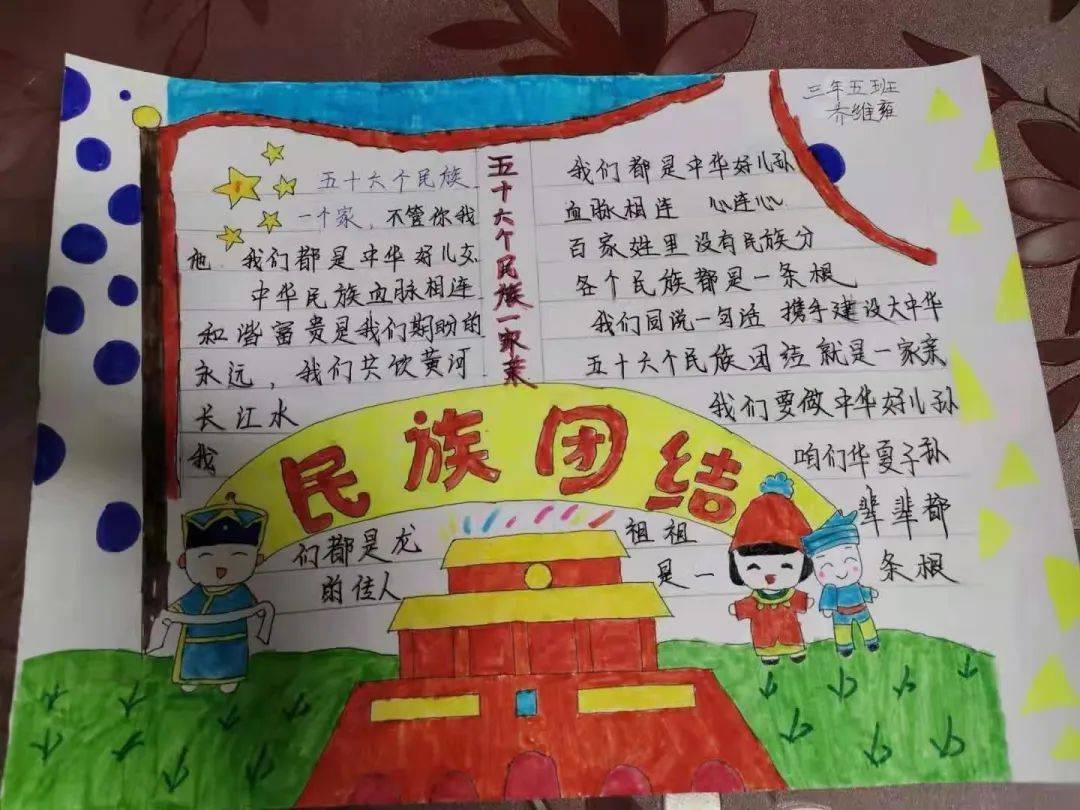 三年五班
乔维雍
五十六个民族
一个家，不管你我
他 我们都是中华好儿女
中华民族血脉相连
和谐富贵是我们期盼的
永远，我们共饮黄河
长江水
我
们都是龙
的佳人
五十六个民族一家亲
我们都是中华好儿孙
血脉相连 心连心
百家姓里没有民族分
各个民族都是一条根
我们同说一句话 携手建设大中华
五十六个民族团结就是一家亲
我们要做中华好儿孙
咱们华夏子孙
祖祖 辈辈都
是一 条根
民族团结